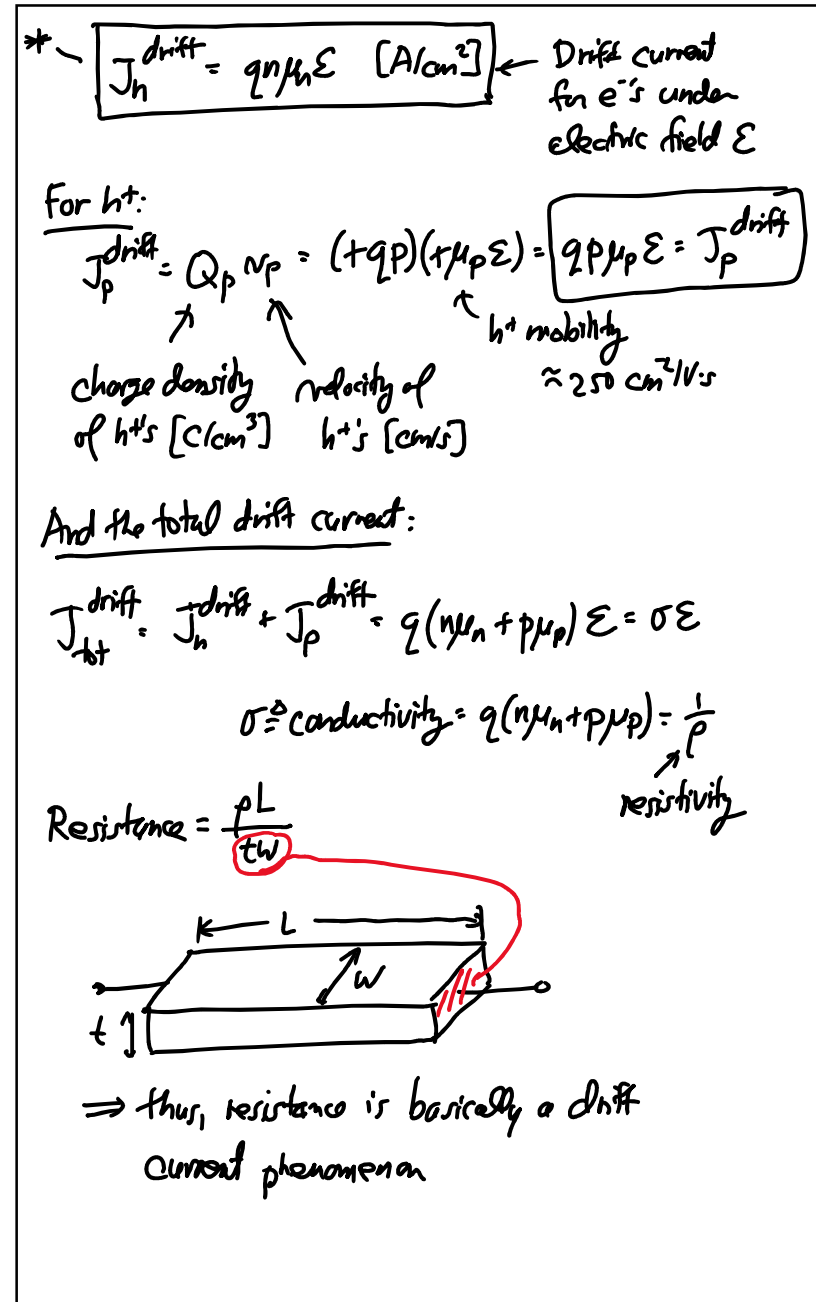 * J_n^drift = qnμ_nƐ [A/cm²] ← Drift current
for e⁻'s under
electric field Ɛ
For h⁺:
J_p^drift = Q_p v_p = (+qp)(+μ_pƐ) = qpμ_pƐ = J_p^drift
h⁺ mobility
≈ 250 cm²/V·s
charge density velocity of
of h⁺'s [C/cm³] h⁺'s [cm/s]
And the total drift current:
J_tot^drift = J_n^drift + J_p^drift = q(nμ_n + pμ_p)Ɛ = σƐ
σ ≜ conductivity = q(nμ_n + pμ_p) = 1/ρ
resistivity
Resistance = ρL/tW
L
W
t
⇒ thus, resistance is basically a drift
current phenomenon